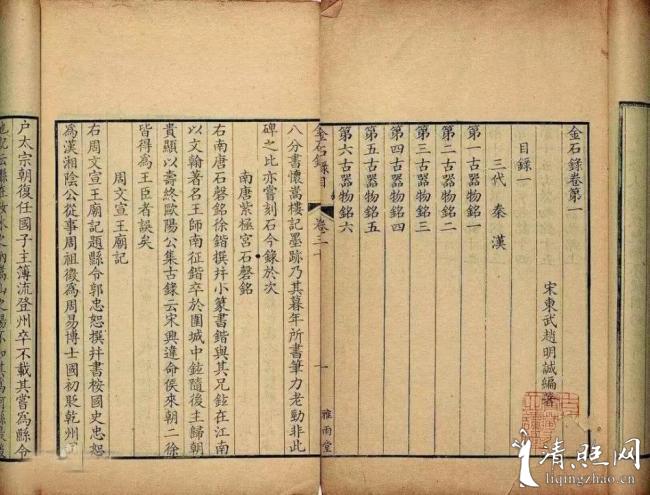 金石錄卷第一
宋東武趙明誠編著
目錄一
三代 秦漢
第一古器物銘一
第二古器物銘二
第三古器物銘三
第四古器物銘四
第五古器物銘五
第六古器物銘六
金石錄目 卷三十
一
雅雨堂
八分書懷嵩樓記墨跡乃其暮年所書筆力老勁非此
碑之比亦嘗刻石今錄於次
南唐紫極宮石磬銘
右南唐石磬銘徐鍇撰幷小篆書鍇與其兄鉉在江南
以文翰著名王師南征鍇卒於圍城中鉉隨後主歸朝
貴顯以壽終歐陽公集古錄云宋興違命侯來朝二徐
皆得為王臣者誤矣
周文宣王廟記
右周文宣王廟記題縣令郭忠恕撰幷書按國史忠恕
爲漢湘陰公從事周祖徵爲周易博士國初貶乾州司
户太宗朝復任國子主簿流登州卒不載其嘗爲縣令
清照网
liqingzhao.cn